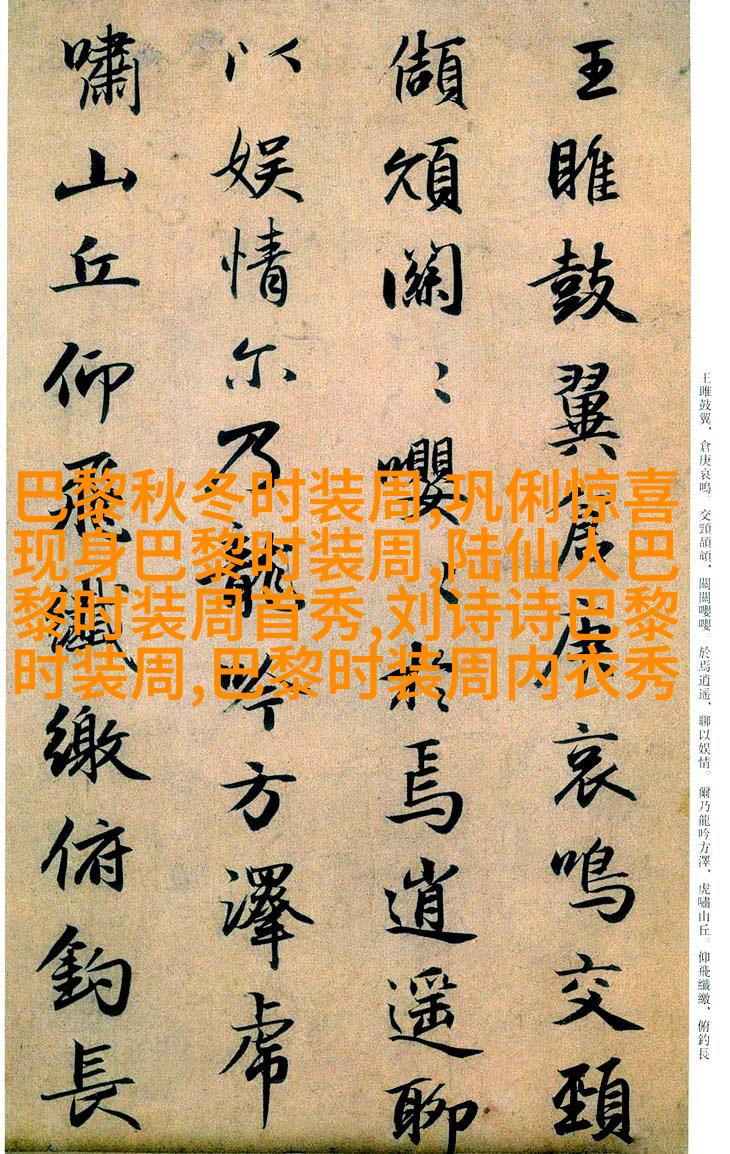 王雎鼓翼倉庚哀鳴交頸
頡頏關〻嚶〻於焉逍遥聊
以娱情尔乃龍吟方澤虎
嘯山丘仰飛纖繳俯釣長
王雎鼓翼、倉庚哀鳴。交頸頡頏、關關嚶嚶。於焉逍遥、聊以娱情。爾乃龍吟方澤、虎嘯山丘。仰飛纖繳、俯釣長
巴黎秋冬时装周,巩俐惊喜
现身巴黎时装周,陆仙人巴
黎时装周首秀,刘诗诗巴黎
时装周,巴黎时装周内衣秀